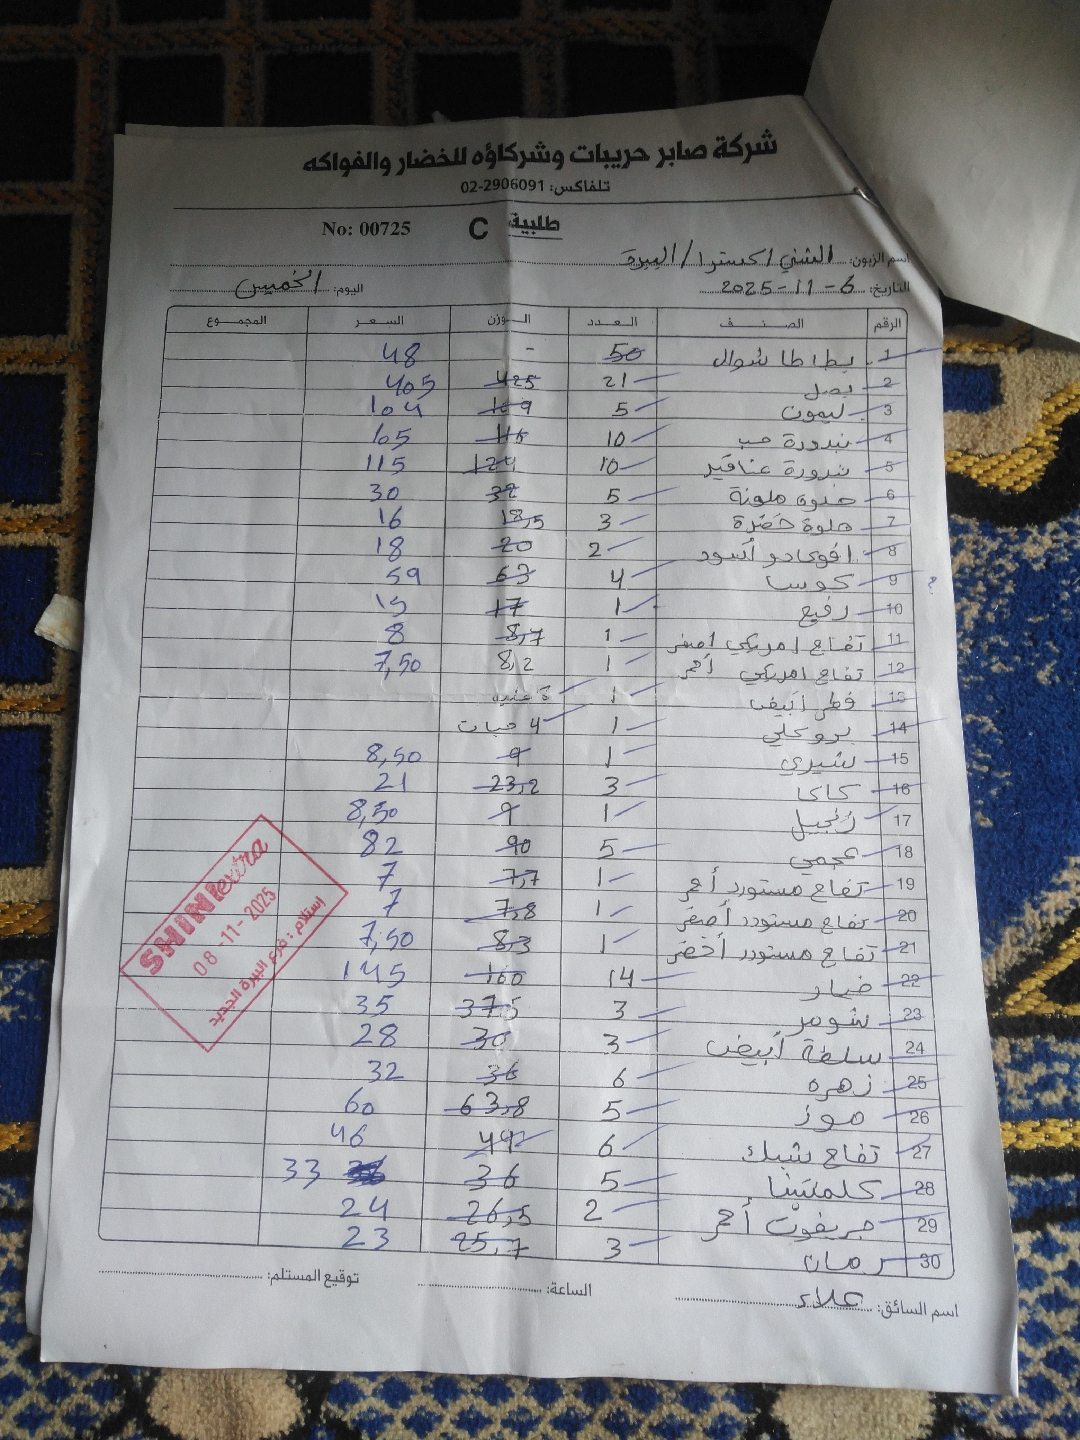 شركة صابر حريبات وشركاؤه للخضار والفواكه
تلفاكس: 02-2906091
طلبية C No: 00725
اسم الزبون: الشني اكسترا / البيرة
التاريخ: 6-11-2025 اليوم: الخميس
الرقم الصنف العدد الوزن السعر المجموع
1 بطاطا شوال 50 - 48
2 بصل 21 425 405
3 ليمون 5 109 104
4 بندورة حب 10 116 105
5 بندورة عناقيد 10 124 115
6 حلوة ملونة 5 32 30
7 حلوة خضرة 3 18,5 16
8 افوكادو أسود 2 20 18
9 كوسا 4 63 59 ?
10 رفيع 1 17 15
11 تفاح امريكي اصفر 1 8,7 8
12 تفاح امريكي أحمر 1 8,2 7,50
13 فطر أبيض 1
14 بروكلي 1 4 حبات
15 شيري 1 9 8,50
16 كاكا 3 23,2 21
17 زنجبيل 1 9 8,50
18 عجمي 5 90 82
19 تفاح مستورد أحمر 1 7,7 7
20 تفاح مستورد أصفر 1 7,8 7
21 تفاح مستورد أخضر 1 8,3 7,50
22 خيار 14 160 145
23 شومر 3 37,5 35
24 سلفة أبيض 3 30 28
25 زهره 6 36 32
26 موز 5 63,8 60
27 تفاح شبك 6 49 46
28 كلمنتينا 5 36 33
29 جريفوت أحمر 2 26,5 24
30 رمان 3 25,7 23
SHINI extra
08-11-2025
إستلام : فرع البيرة الجديد
اسم السائق: علاء الساعة: توقيع المستلم: